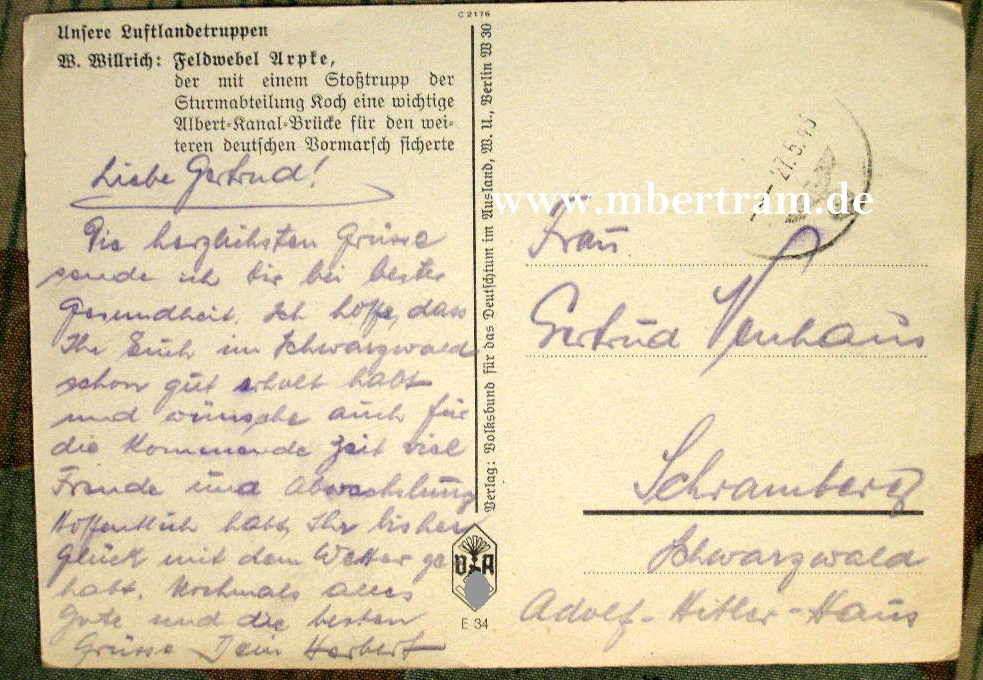 C 2176
Unsere Luftlandetruppen
W. Willrich: Feldwebel Arpke,
der mit einem Stoßtrupp der
Sturmabteilung Koch eine wichtige
Albert-Kanal-Brücke für den wei-
teren deutschen Vormarsch sicherte
Liebe Gertrud!
Die herzlichsten Grüsse
sende ich Dir bei bester
Gesundheit. Ich hoffe, dass
Ihr Euch im Schwarzwald
schon gut erholt habt
und wünsche auch für
die kommende Zeit viel
Freude und Abwechslung
Hoffentlich habt Ihr bisher
Glück mit dem Wetter ge
habt. Nochmals alles
Gute und die besten
Grüsse Dein Herbert
Verlag: Volksbund für das Deutschtum im Ausland, W. U., Berlin W 30
VDA
E 34
27.5.43
www.mbertram.de
Frau
Gertrud Venhaus
Schramberg
Schwarzwald
Adolf-Hitler-Haus